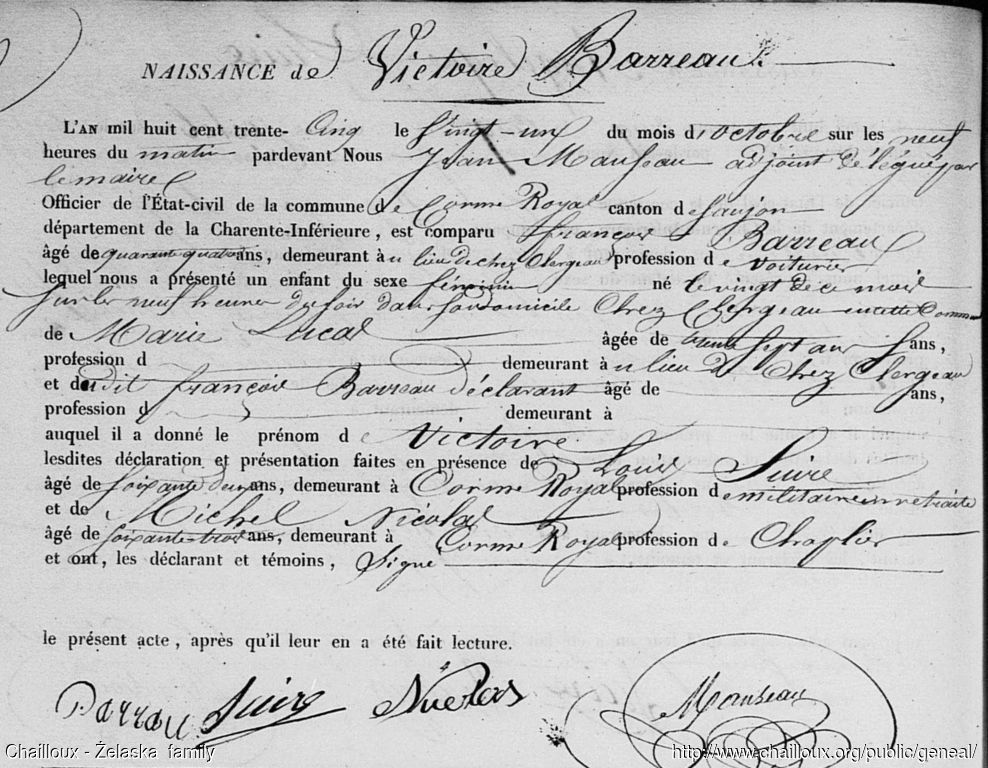 NAISSANCE de Victoire Barreau.
L'AN mil huit cent trente-Cinq le Vingt-un du mois d'octobre sur les neuf
heures du matin pardevant Nous Jean Mauseau adjoint délégué par
le maire
Officier de l'État-civil de la commune de Corme Royal canton de Saujon
département de la Charente-Inférieure, est comparu françois Barreau
âgé de quarante quatre ans, demeurant à u lieu de chez Clergeau profession de voiturier
lequel nous a présenté un enfant du sexe féminin né le vingt de ce mois
sur les neuf heures du soir dans son domicile Chez Clergeau en cette Commune
de Marie Lucas âgée de trente sept ans ans,
profession d demeurant à u lieu de Chez Clergeau
et du dit françois Barreau déclarant âgé de ans,
profession d demeurant à
auquel il a donné le prénom de Victoire
lesdites déclaration et présentation faites en présence de Louis Suire
âgé de soixante deux ans, demeurant à Corme Royal profession de militaire en retraite
et de Michel Nicolas
âgé de soixante-trois ans, demeurant à Corme Royal profession de Chaplier
et ont, les déclarant et témoins, Signé
le présent acte, après qu'il leur en a été fait lecture.
Barrau Suire Nicolas Mauseau
Chailloux - Želaska family http://www.chailloux.org/public/geneal/